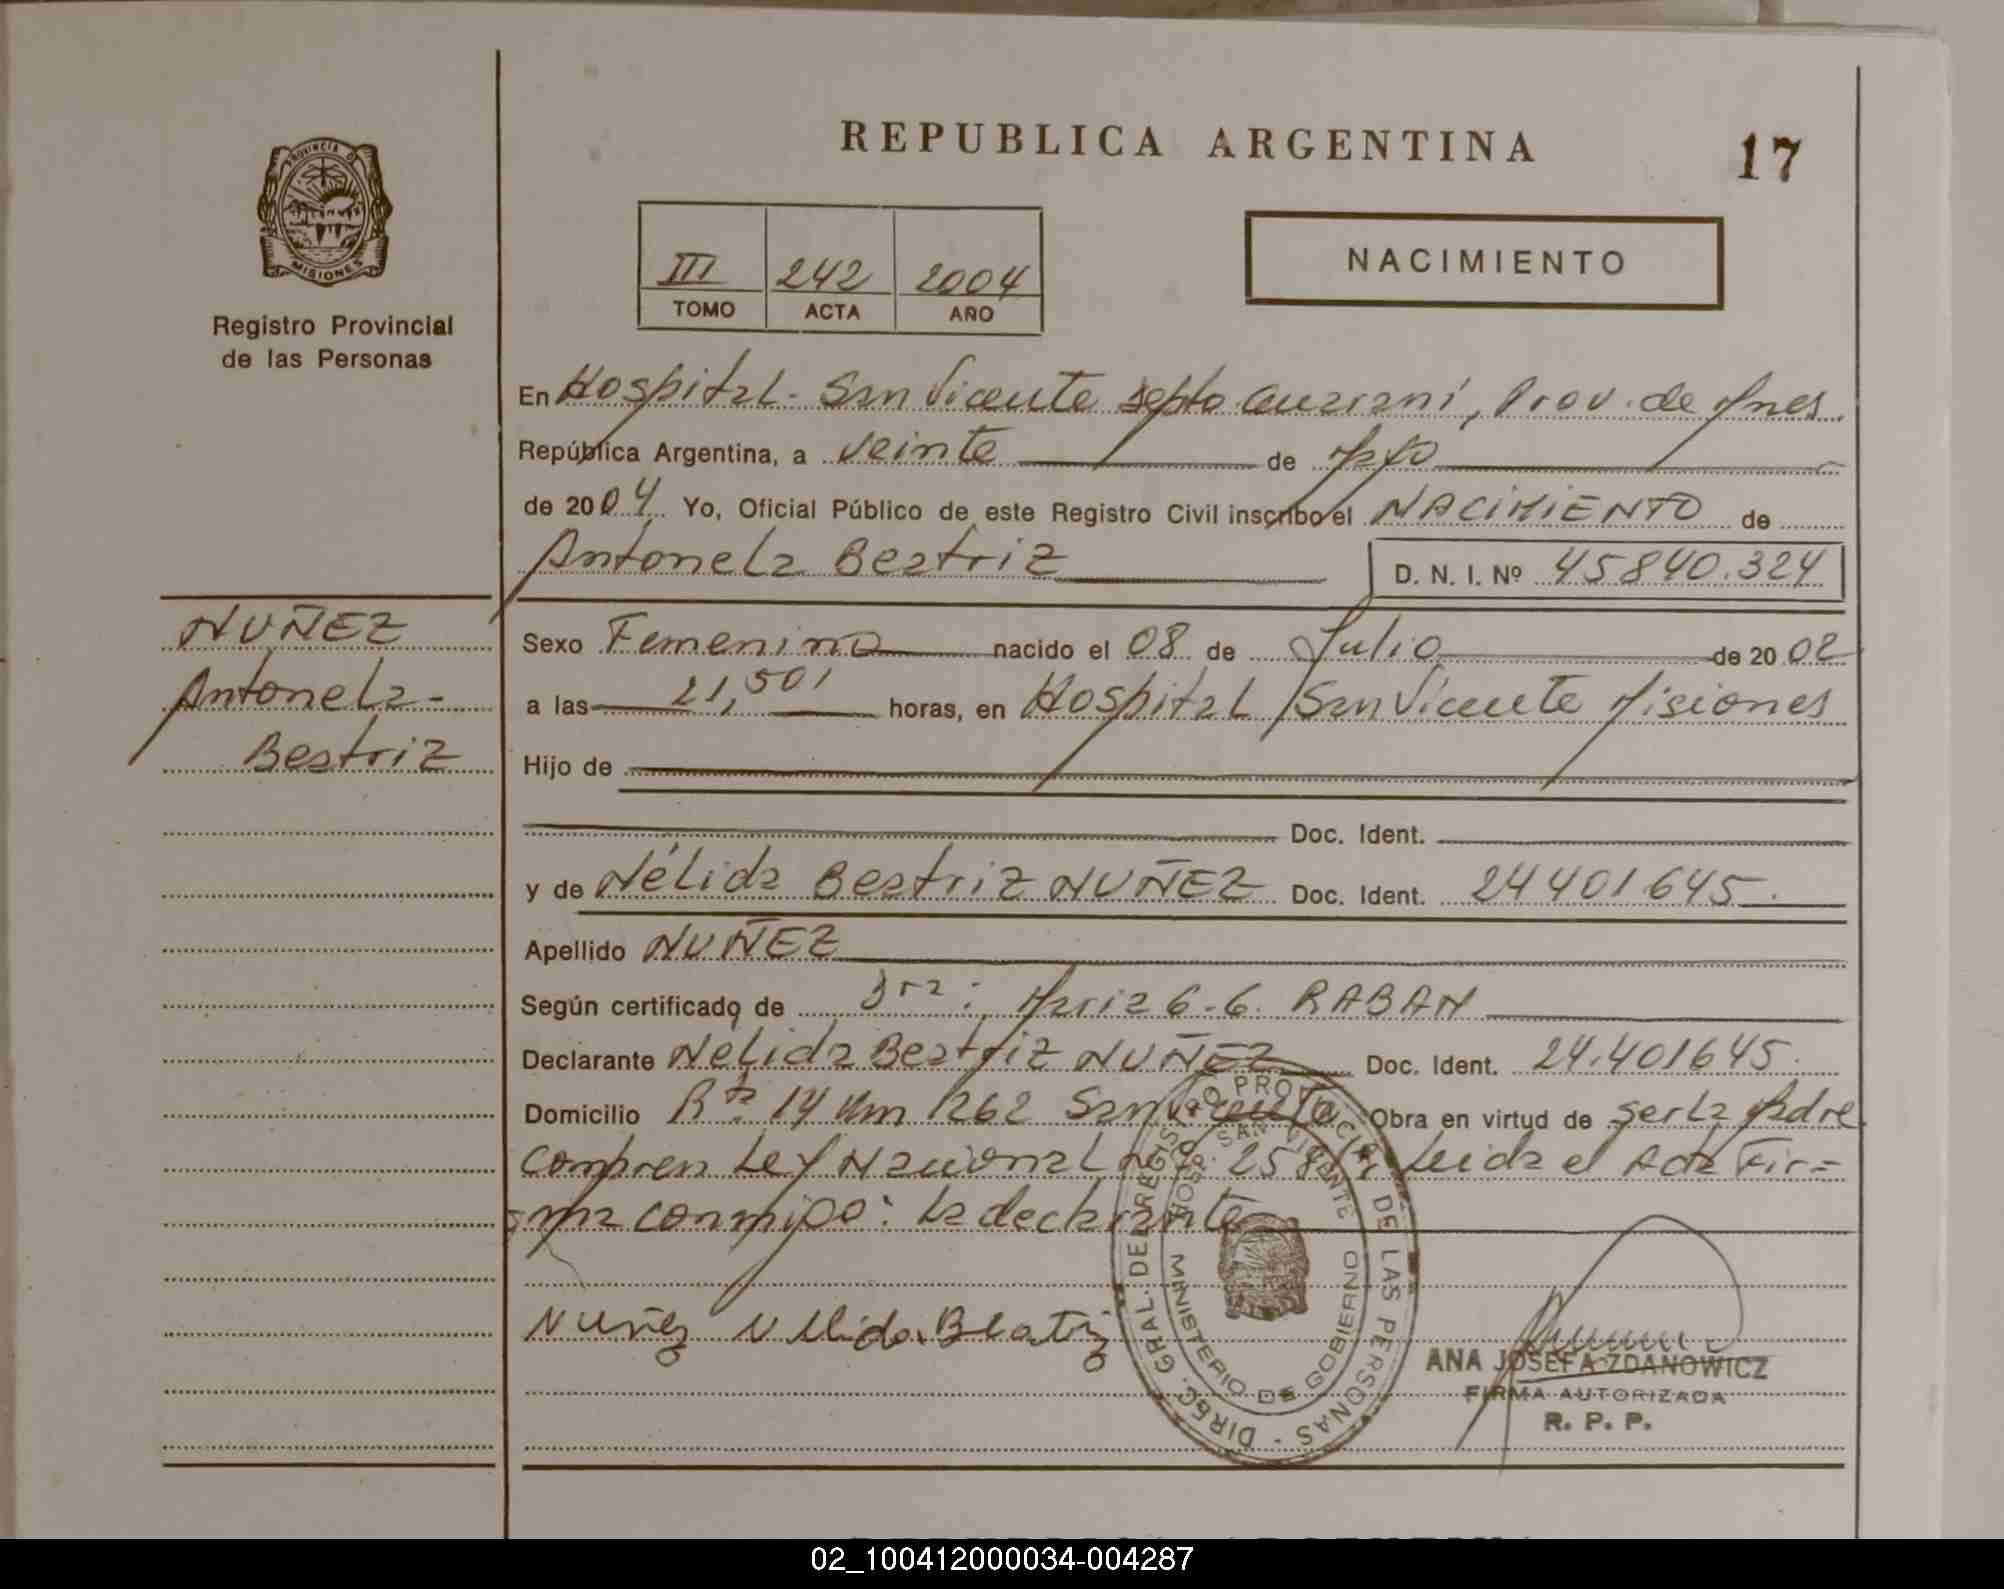 REPUBLICA ARGENTINA
17
PROVINCIA DE
MISIONES
Registro Provincial
de las Personas
III 242 2004
TOMO ACTA AÑO
NACIMIENTO
En Hospital - San Vicente Depto Guaraní, Prov. de Mnes.
República Argentina, a veinte de Mayo
de 2004 Yo, Oficial Público de este Registro Civil inscribo el NACIMIENTO de
Antonela Beatriz D. N. I. Nº 45840.324
NUÑEZ
Antonela-
Beatriz
Sexo Femenino nacido el 08 de Julio de 2002
a las 21,50' horas, en Hospital San Vicente Misiones
Hijo de
Doc. Ident.
y de Nélida Beatriz NUÑEZ Doc. Ident. 24401645.
Apellido NUÑEZ
Según certificado de Dra: Maria G. G. RABAN
Declarante Nelida Beatriz NUÑEZ Doc. Ident. 24.401645.
Domicilio Rta. 14 Km 1262 San Vicente Obra en virtud de ser la Madre
Compren Ley Nacional Leida el Acta Fir=
ma conmigo: La declarante
Nuñez Nelida Beatriz
DIREC. GRAL. DEL REGISTRO PROVINCIAL DE LAS PERSONAS -
HOSP. SAN VICENTE
MINISTERIO DE GOBIERNO
ANA JOSEFA ZDANOWICZ
FIRMA AUTORIZADA
R. P. P.
02_100412000034-004287